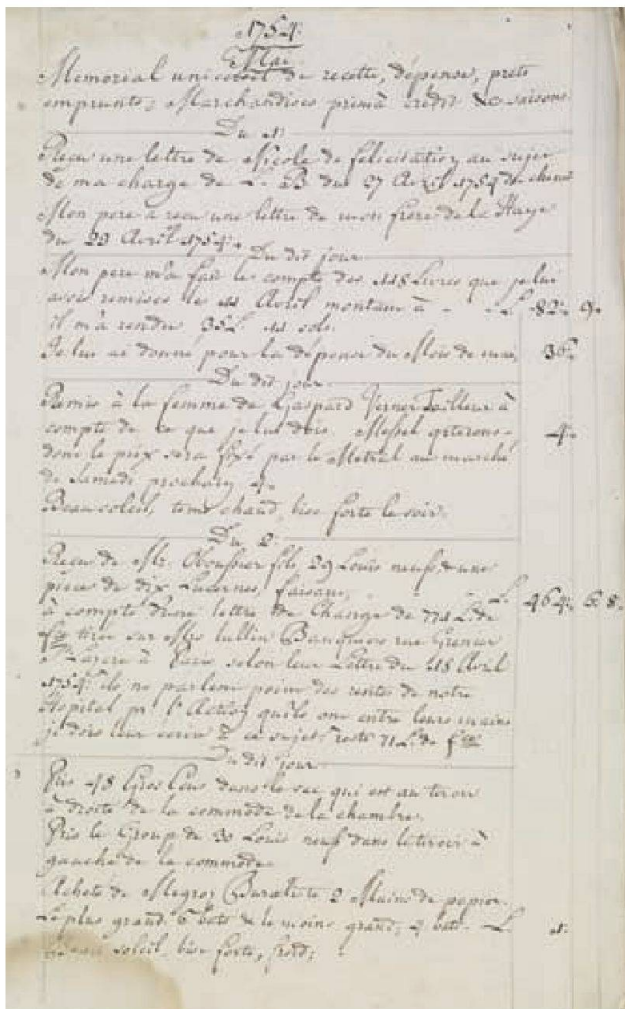 1754.
Mai.
Memorial universel de recette, dépense, prets
emprunts, Marchandises prim à crédit & saisons
Du 1.
Reçu une lettre de Nicole de félicitation au sujet
de ma charge de L. B du 27 Avril 1754
Mon pere a reçu une lettre de mon frere de la Haye
du 29 Avril 1754.
Du dit jour.
Mon pere m'a fait le compte des 118 Livres que je lui
avois remises le 11 Avril montant à - - L. 82. 9.
il m'a rendu 35 L. 11 sols.
Je lui ai donné pour la dépense du Mois de mai, 36.
Du dit jour.
Remis à la femme de Gaspard Verner Tailleur à
compte de ce que je lui dois. 4.
dont le prix sera fixé par le Metral au marché
de Samedi prochain 4.
Beau soleil, tems chaud, bise forte le soir.
Du 2.
Reçu de Mr. fils, 29 Louis neufs, & une
piece de dix Lucernes, faisant, L. 464. 6. 8.
à compte d'une lettre de Change de 771 L. de
tirée sur Mrs Lullin Banquiers rue Grenier
St Lazare à Paris selon leur Lettre du 18 Avril
1754. ils ne parlent point des rentes de notre
Hopital pr. l'Action qu'ils ont entre leurs mains
je dois leur ecrire à ce sujet. reste 71 L. de
Du dit jour.
Pris 48 Gros Ecus dans le sac qui est au tiroir
à droite de la commode de la chambre.
Pris le Group de 30 Louis neuf dans le tiroir à
gauche de la commode.
Acheté de 2 Mains de papier.
Le plus grand 6 bats & le moins grand, 4 bats. L. 1.
soleil, bise forte, froid;